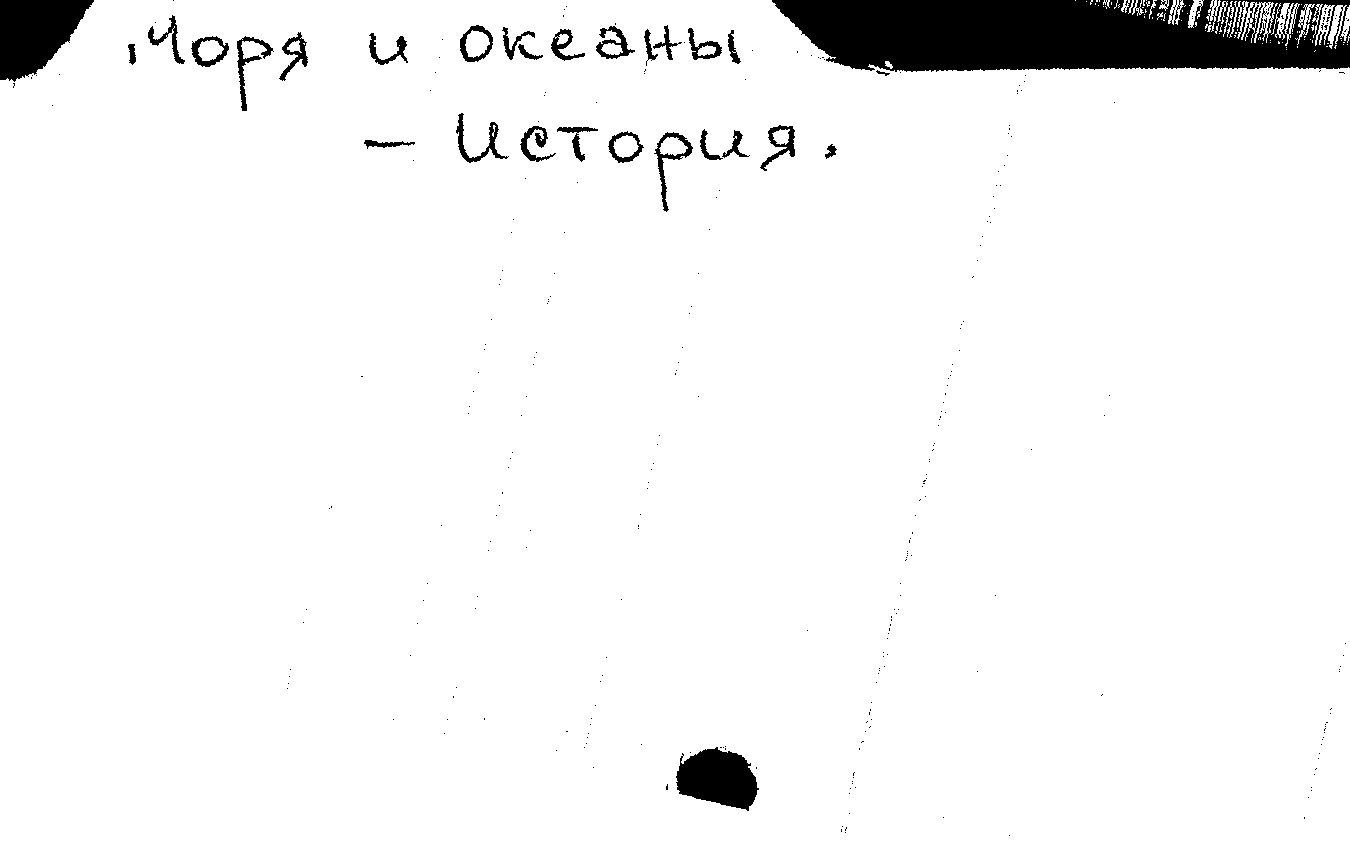 Моря и океаны
— История.